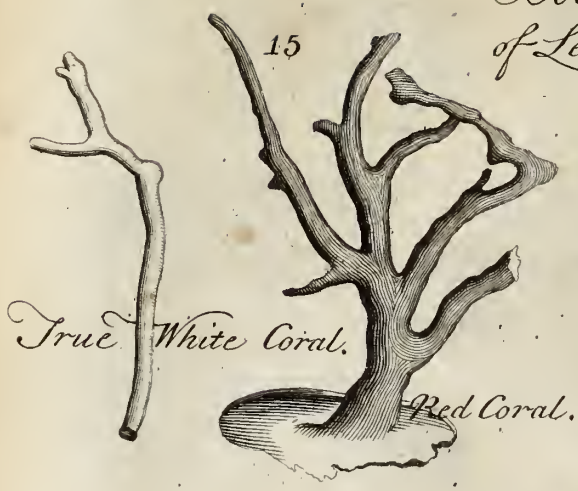 15
of
True White Coral.
Red Coral.